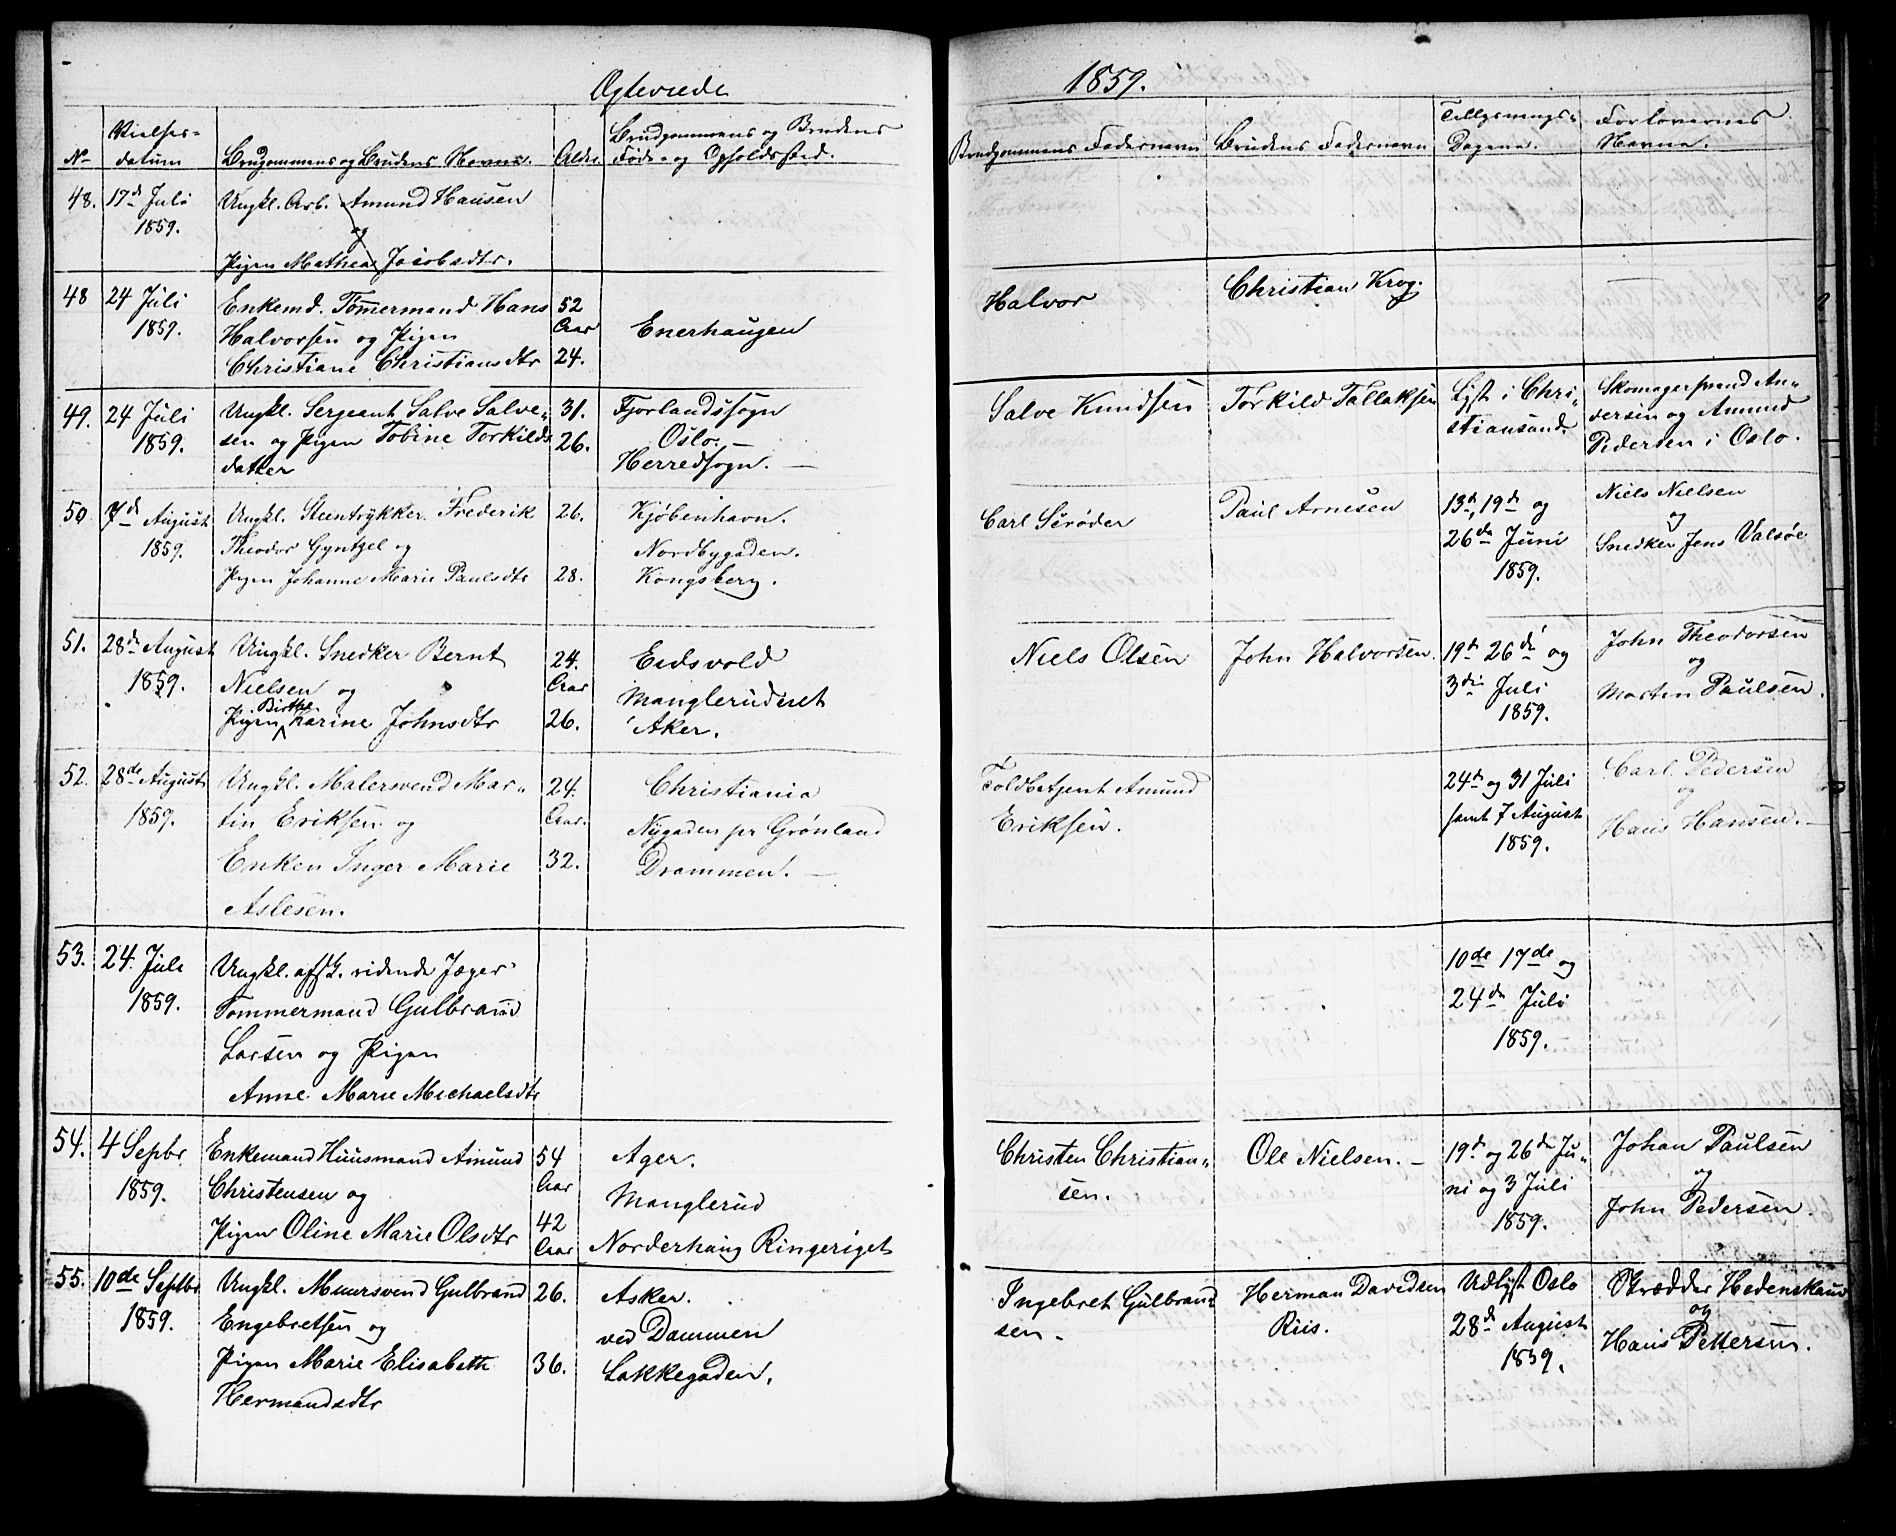 Ægteviede
1859.
No
Vielses-
datum
Brudgommens og Brudens Navne.
Alder
Brudgommens og Brudens
Føde- og Opholdssted.
Brudgommens Fadernavn
Brudens Fadernavn
Tillysnings-
Dagene.
Forlovernes
Navne.
48.
17de Juli
1859.
Ungkl. Arb. Amund Hansen
og
Pigen Mathea Jacobsdtr.
48
24 Juli
1859.
Enkemd. Tømmermand Hans
Halvorsen og Pigen
Christiane Christiansdtr
52
Aar
24.
Enerhaugen
Halvor
Christian Krog.
49.
24 Juli
1859.
Ungkl. Sergeant Salve Salve-
sen og Pigen Tobine Torkilds
datter
31.
26.
Fjorlandssogn
Oslo. —
Herredsogn. —
Salve Knudsen
Torkild Tallaksen
Lyst i Chri-
stiansand.
Skomagersvend An-
dersen og Amund
Pedersen i Oslo.
50
7de August
1859.
Ungkl. Steentrykker Frederik
Theodor Gyntzel og
Pigen Johanne Marie Paulsdtr
26.
28.
Kjöbenhavn.
Nordbygaden.
Kongsberg.
Carl Scrøder
Paul Arnesen
13de, 19de og
26de Juni
1859.
Niels Nielsen
og
Snedker Jens Valsøe
51.
28de August
1859.
Ungkl. Snedker Bernt
Nielsen og
Birthe
Pigen Karine Johnsdtr
24.
Aar
26.
Eidsvold
Mangleruderet
Aker.
Niels Olsen
John Halvorsen.
19de 26de og
3die Juli
1859.
John Theodorsen
og
Martin Paulsen.
52.
28de August
1859.
Ungkl. Malersvend Mar-
tin Eriksen og
Enken Inger Marie
Aslesen.
24.
Aar.
32.
Christiania
Nygaden pr Grønland
Drammen. —
Toldbetjent Amund
Eriksen.
24de og 31 Juli
samt 7 August
1859.
Carl Pedersen
og
Hans Hansen. —
53.
24. Juli
1859.
Ungkl. ridende Jæger
Tømmermand Gulbrand
Larsen og Pigen
Anne Marie Michaelsdtr
10de 17de og
24de Juli
1859.
54.
4 Sepbr
1859.
Enkemand Huusmand Amund
Christensen og
Pigen Oline Marie Olsdtr
54
Aar
42
Aar
Ager.
Manglerud
Norderhaug Ringeriget
Christen Christian-
sen.
Ole Nielsen. —
19de og 26de Ju-
ni og 3 Juli
1859.
Johan Paulsen
og
John Pedersen.
55.
10de Septbr
1859.
Ungkl. Muursvend Gulbrand
Engebretsen og
Pigen Marie Elisabeth
Hermandsdtr
26.
36.
Asker.
ved Dammen
Lakkegaden.
Ingebret Gulbrand-
sen.
Herman Davidsen
Riis.
Udlyst Oslo
28de August
1859.
Skrædder Hedenskaug
og
Hans Pettersen.